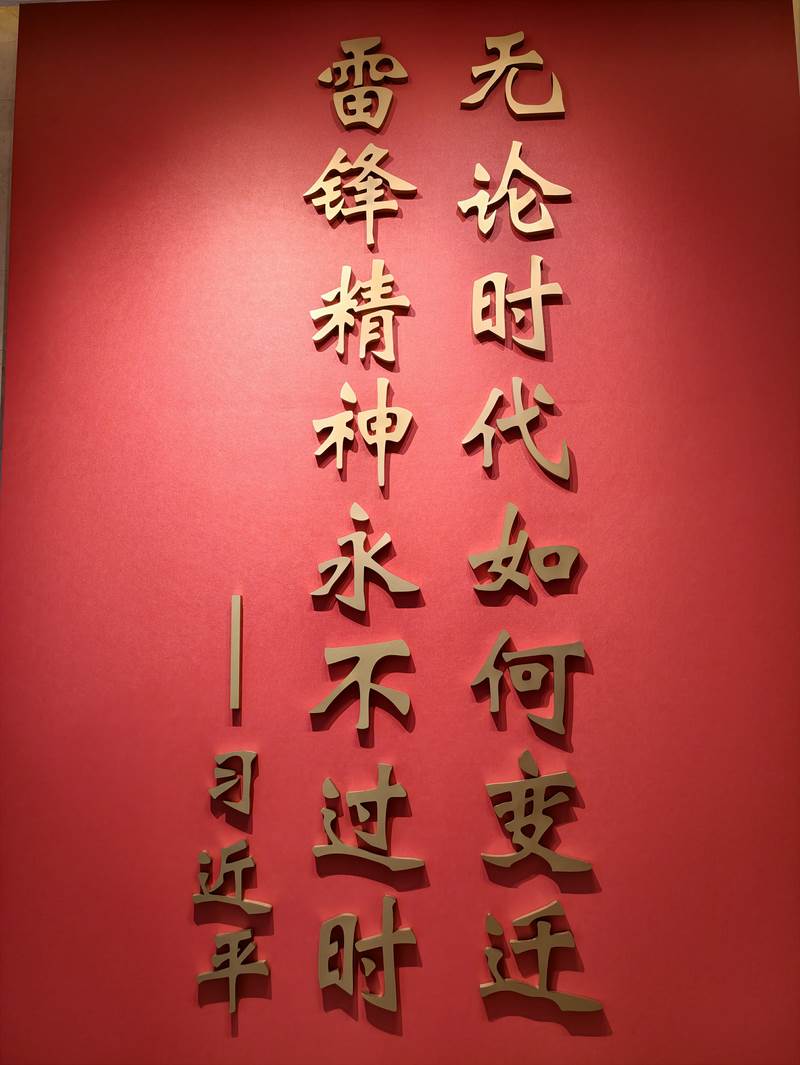 无论时代如何变迁
雷锋精神永不过时
——习近平